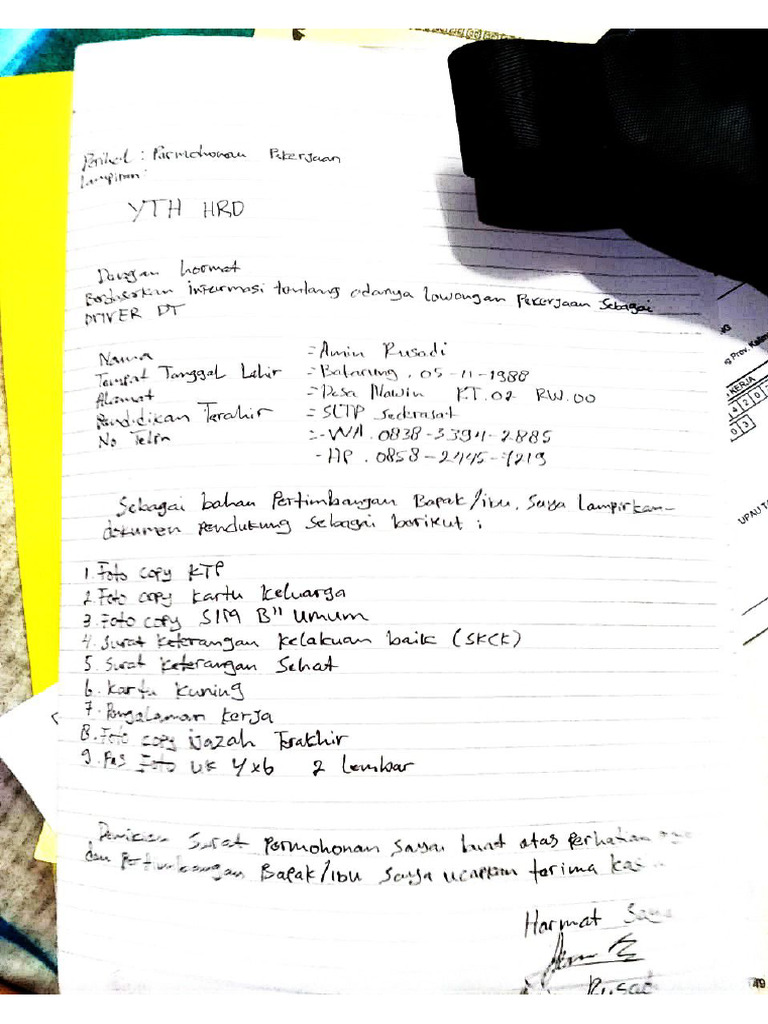 Perihal : Permohonan Pekerjaan
Lampiran :
YTH HRD
Dengan hormat
Berdasarkan informasi tentang adanya lowongan Pekerjaan Sebagai
DRIVER DT
Nama = Amin Rusadi
Tempat Tanggal Lahir = Batarung, 05-11-1988
Alamat = Desa Mawin RT.02 RW.00
Pendidikan Terahir = SLTP Sederasat
No Telfn = -WA.0838-3394-2885
-HP.0858-2445-7219
Sebagai bahan Pertimbangan Bapak/ibu, Saya lampirkan-
dokumen Pendukung Sebagai berikut ;
1. Foto copy KTP
2. Foto copy kartu keluarga
3. Foto copy SIM B" Umum
4. Surat keterangan kelakuan baik (SKCK)
5. Surat keterangan Sehat
6. kartu kuning
7. Pengalaman kerja
8. Foto copy ijazah Terakhir
9. Pas Foto uk 4x6 2 lembar
Demikian Surat Permohonan Saya buat atas Perhatian
dan Pertimbangan Bapak/ibu Saya ucapkan terima kasi
Hormat Saya
Rusad
KERJA
4 2 0
0 3
UPAU
49